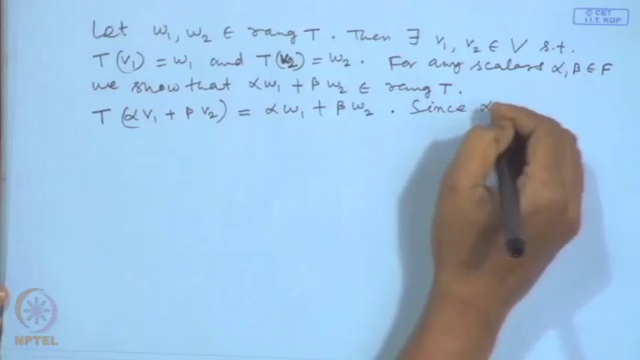 © CET
I.I.T. KGP
Let w₁, w₂ ∈ rang T. Then ∃ v₁, v₂ ∈ V s.t.
T(v₁) = w₁ and T(v₂) = w₂. For any scalars α, β ∈ F
we show that α w₁ + β w₂ ∈ rang T.
T(α v₁ + β v₂) = α w₁ + β w₂. Since α
NPTEL